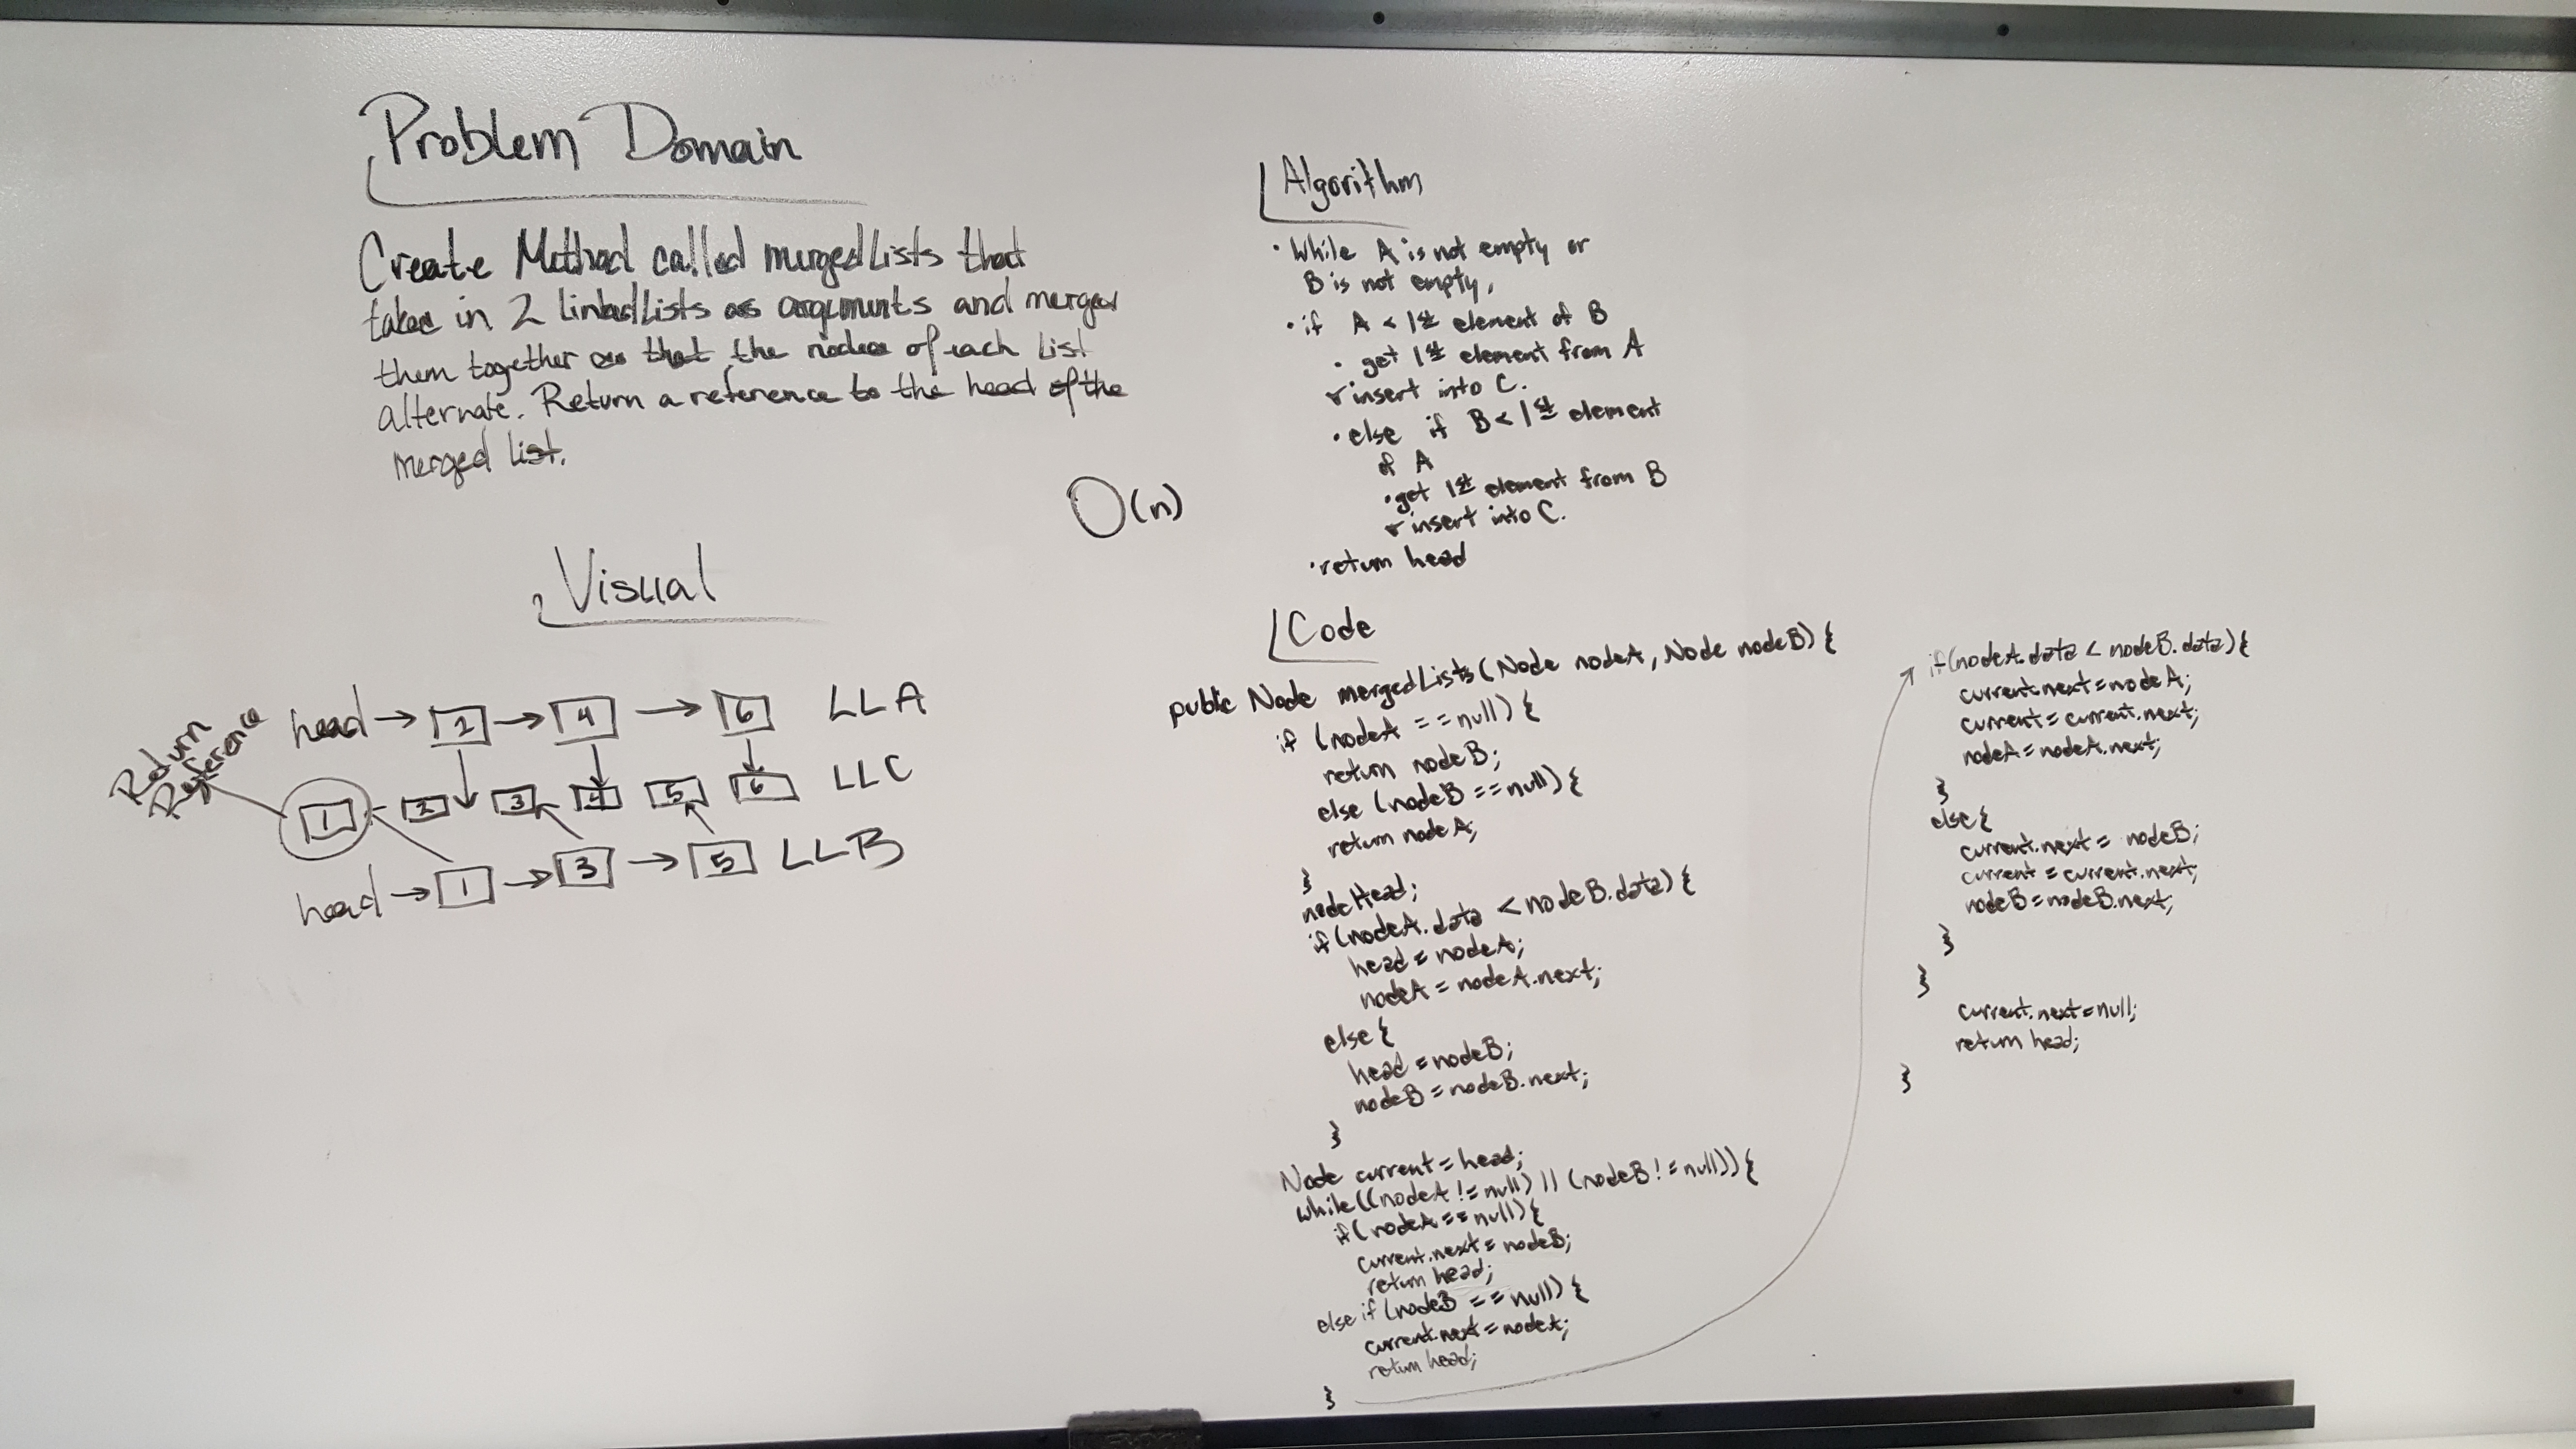 Problem Domain
Create Method called mergedLists that
takes in 2 linkedLists as arguments and merges
them together so that the nodes of each List
alternate. Return a reference to the head of the
merged list.
O(n)
Visual
head → 2 → 4 → 6 LLA
Return
Reference
1 2 3 4 5 6 LLC
head → 1 → 3 → 5 LLB
Algorithm
• While A is not empty or
B is not empty,
• if A < 1st element of B
• get 1st element from A
insert into C.
• else if B < 1st element
of A
• get 1st element from B
insert into C.
• return head
Code
public Node mergedLists(Node nodeA, Node nodeB) {
if (nodeA == null) {
return nodeB;
else (nodeB == null) {
return nodeA;
}
node Head;
if (nodeA.data < nodeB.data) {
head = nodeA;
nodeA = nodeA.next;
else {
head = nodeB;
nodeB = nodeB.next;
}
Node current = head;
while ((nodeA != null) || (nodeB != null)) {
if (nodeA == null) {
current.next = nodeB;
return head;
else if (nodeB == null) {
current.next = nodeA;
return head;
}
if (nodeA.data < nodeB.data) {
current.next = nodeA;
current = current.next;
nodeA = nodeA.next;
}
else {
current.next = nodeB;
current = current.next;
nodeB = nodeB.next;
}
}
current.next = null;
return head;
}